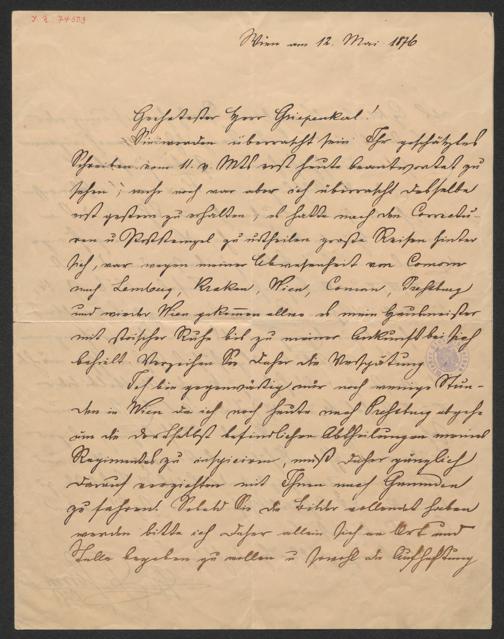 I. N. 74583
Wien am 12. Mai 1876
Geehrtester Herr Griepenkerl!
Sie werden überrascht sein Ihr geschätztes
Schreiben vom 11. v. Mts erst heute beantwortet zu
sehen; mehr noch war aber ich überrascht dasselbe
erst gestern zu erhalten, es hatte nach den Correctu-
ren u Poststempel zu urtheilen große Reisen hinter
sich, war wegen meiner Abwesenheit von Comorn
nach Lemberg, Krakau, Wien, Comorn, Preßburg
und wieder Wien gekommen allwo es mein Hausmeister
mit stoischer Ruhe bis zu meiner Ankunft bei sich
behielt. Verzeihen Sie daher die Verspätung
Ich bin gegenwärtig nur noch wenige Stun-
den in Wien da ich noch heute nach Preßburg abgehe
um die dortselbst befindlichen Abtheilungen meines
Regimentes zu inspiciren, muß daher gänzlich
darauf verzichten mit Ihnen nach Gmunden
zu fahren. Sobald Sie die Bilder vollendet haben
werden bitte ich daher allein sich an Ort und
Stelle begeben zu wollen u sowohl die Aufheftung